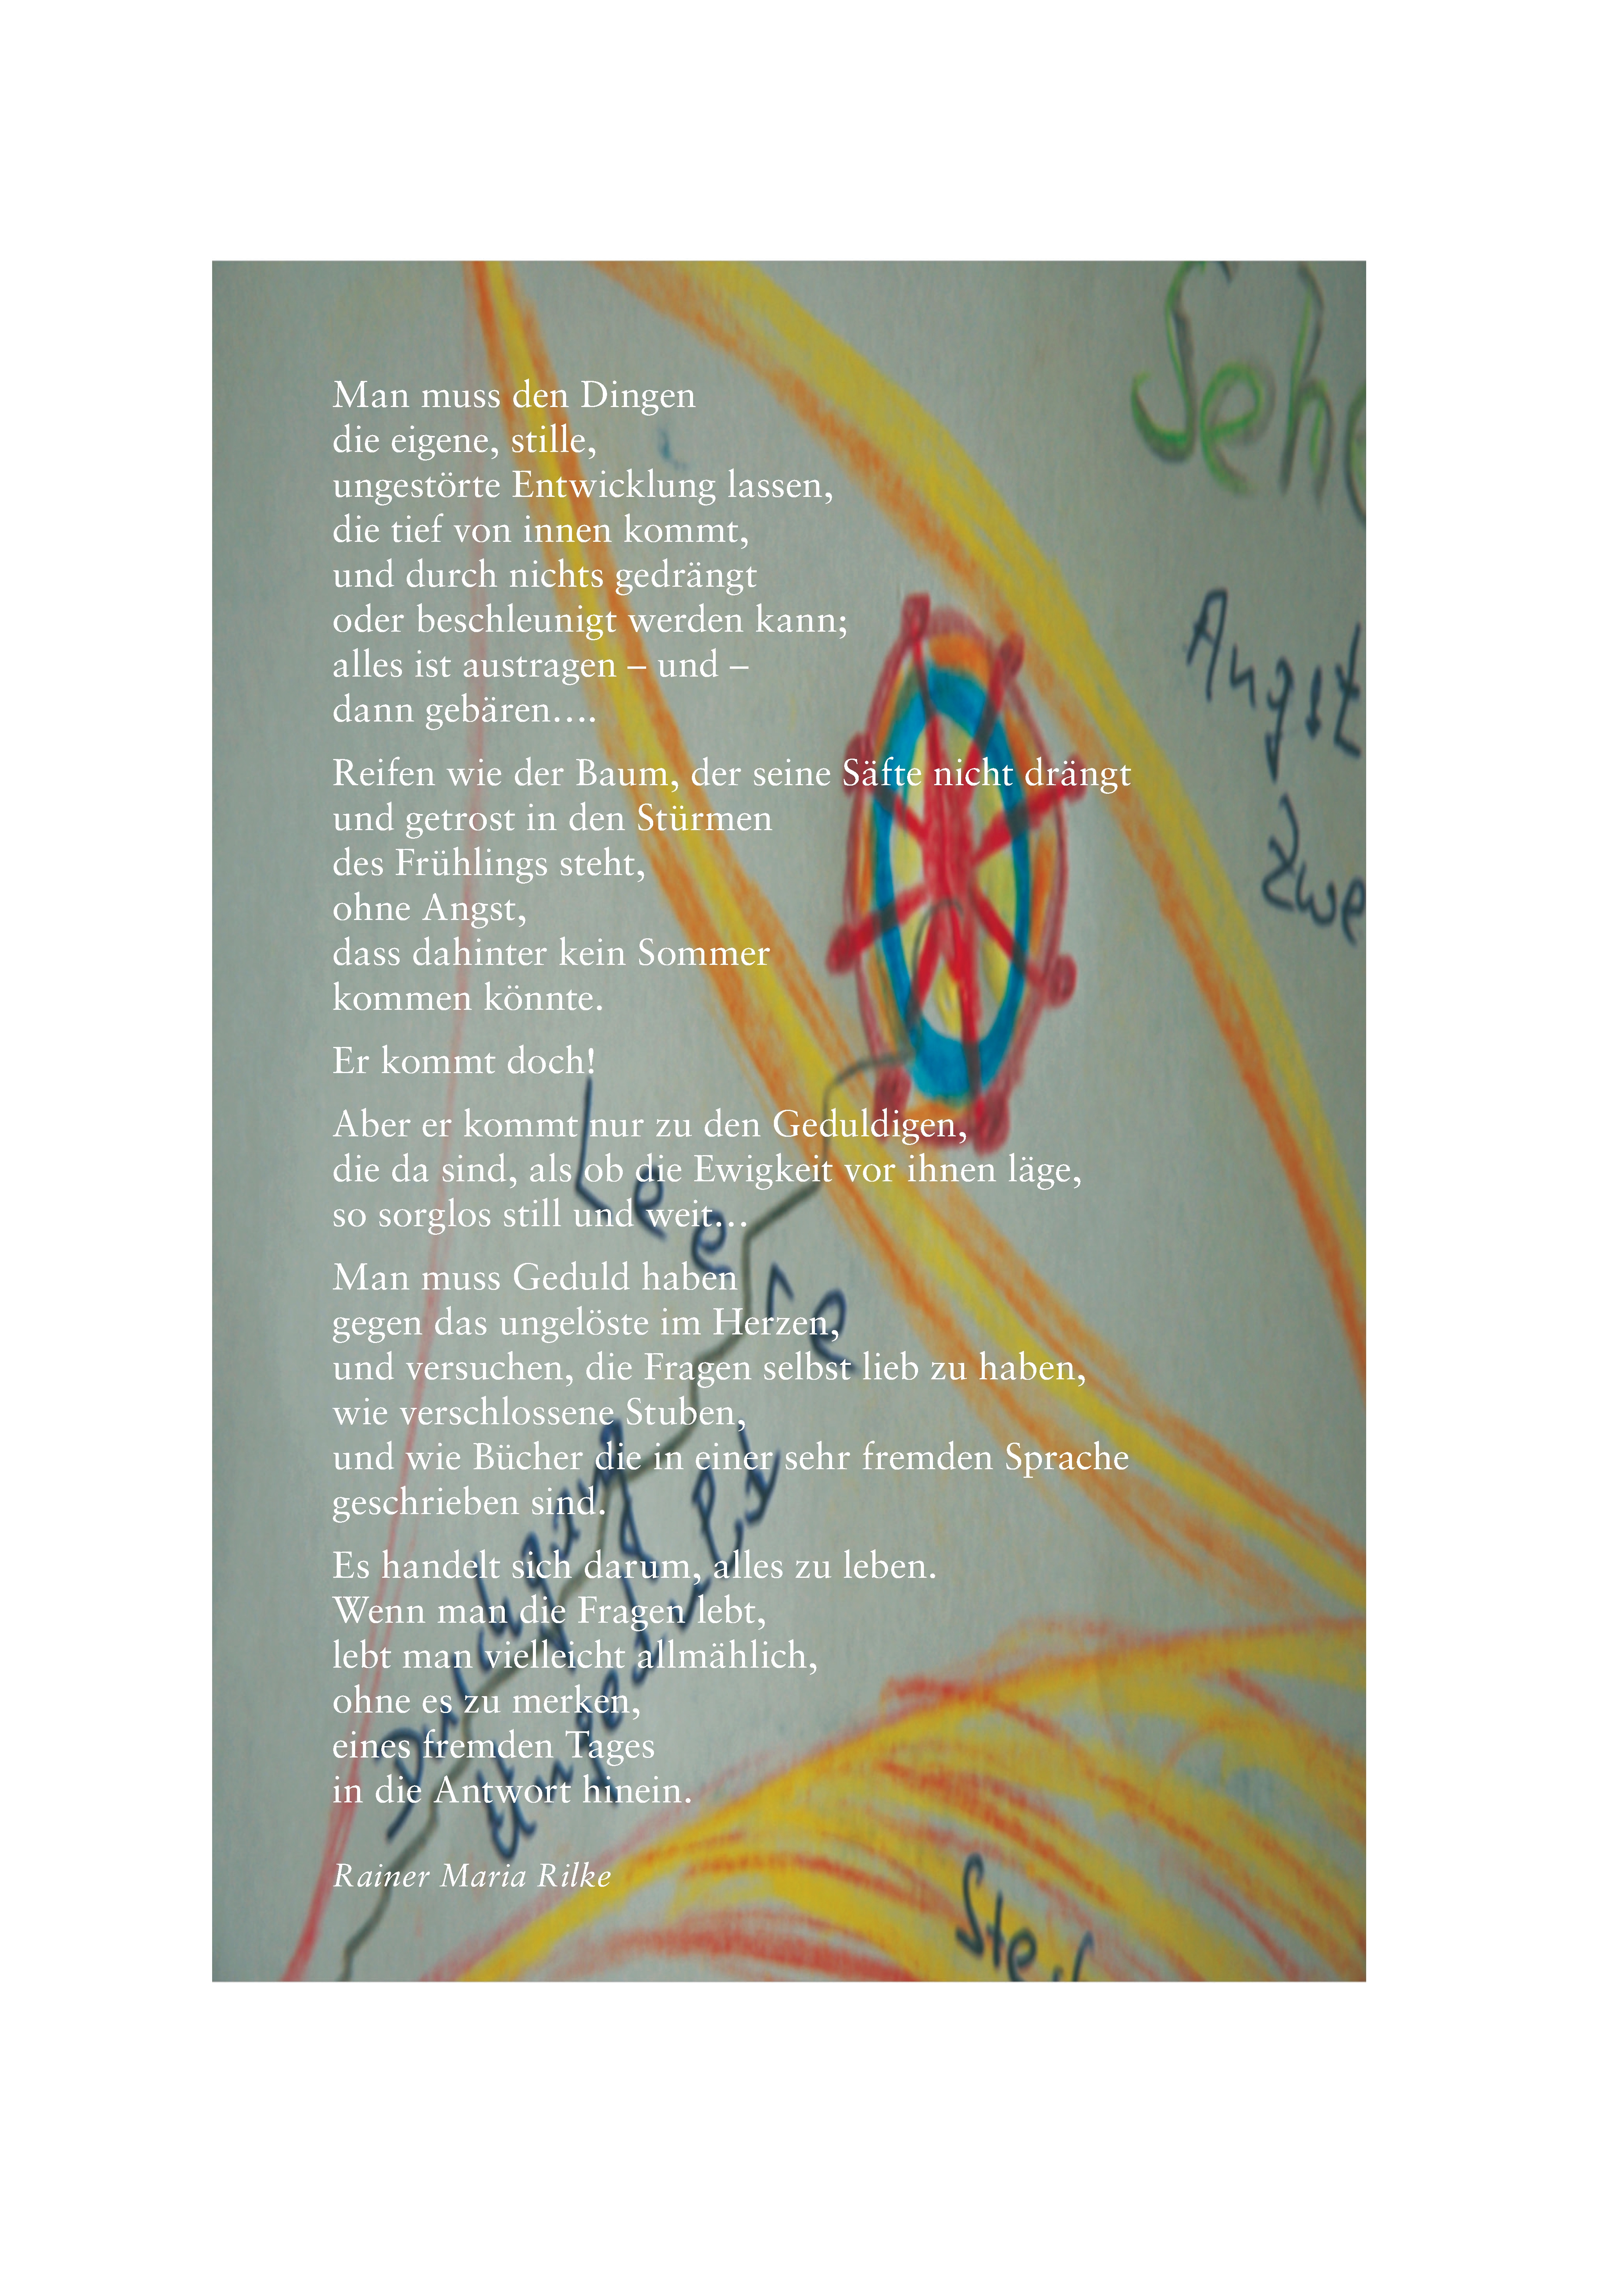 Man muss den Dingen
die eigene, stille,
ungestörte Entwicklung lassen,
die tief von innen kommt,
und durch nichts gedrängt
oder beschleunigt werden kann;
alles ist austragen – und –
dann gebären….
Reifen wie der Baum, der seine Säfte nicht drängt
und getrost in den Stürmen
des Frühlings steht,
ohne Angst,
dass dahinter kein Sommer
kommen könnte.
Er kommt doch!
Aber er kommt nur zu den Geduldigen,
die da sind, als ob die Ewigkeit vor ihnen läge,
so sorglos still und weit…
Man muss Geduld haben
gegen das ungelöste im Herzen,
und versuchen, die Fragen selbst lieb zu haben,
wie verschlossene Stuben,
und wie Bücher die in einer sehr fremden Sprache
geschrieben sind.
Es handelt sich darum, alles zu leben.
Wenn man die Fragen lebt,
lebt man vielleicht allmählich,
ohne es zu merken,
eines fremden Tages
in die Antwort hinein.
Rainer Maria Rilke
Sehe
Angst
Zwe
Leere
Durchgang
Ungeduld